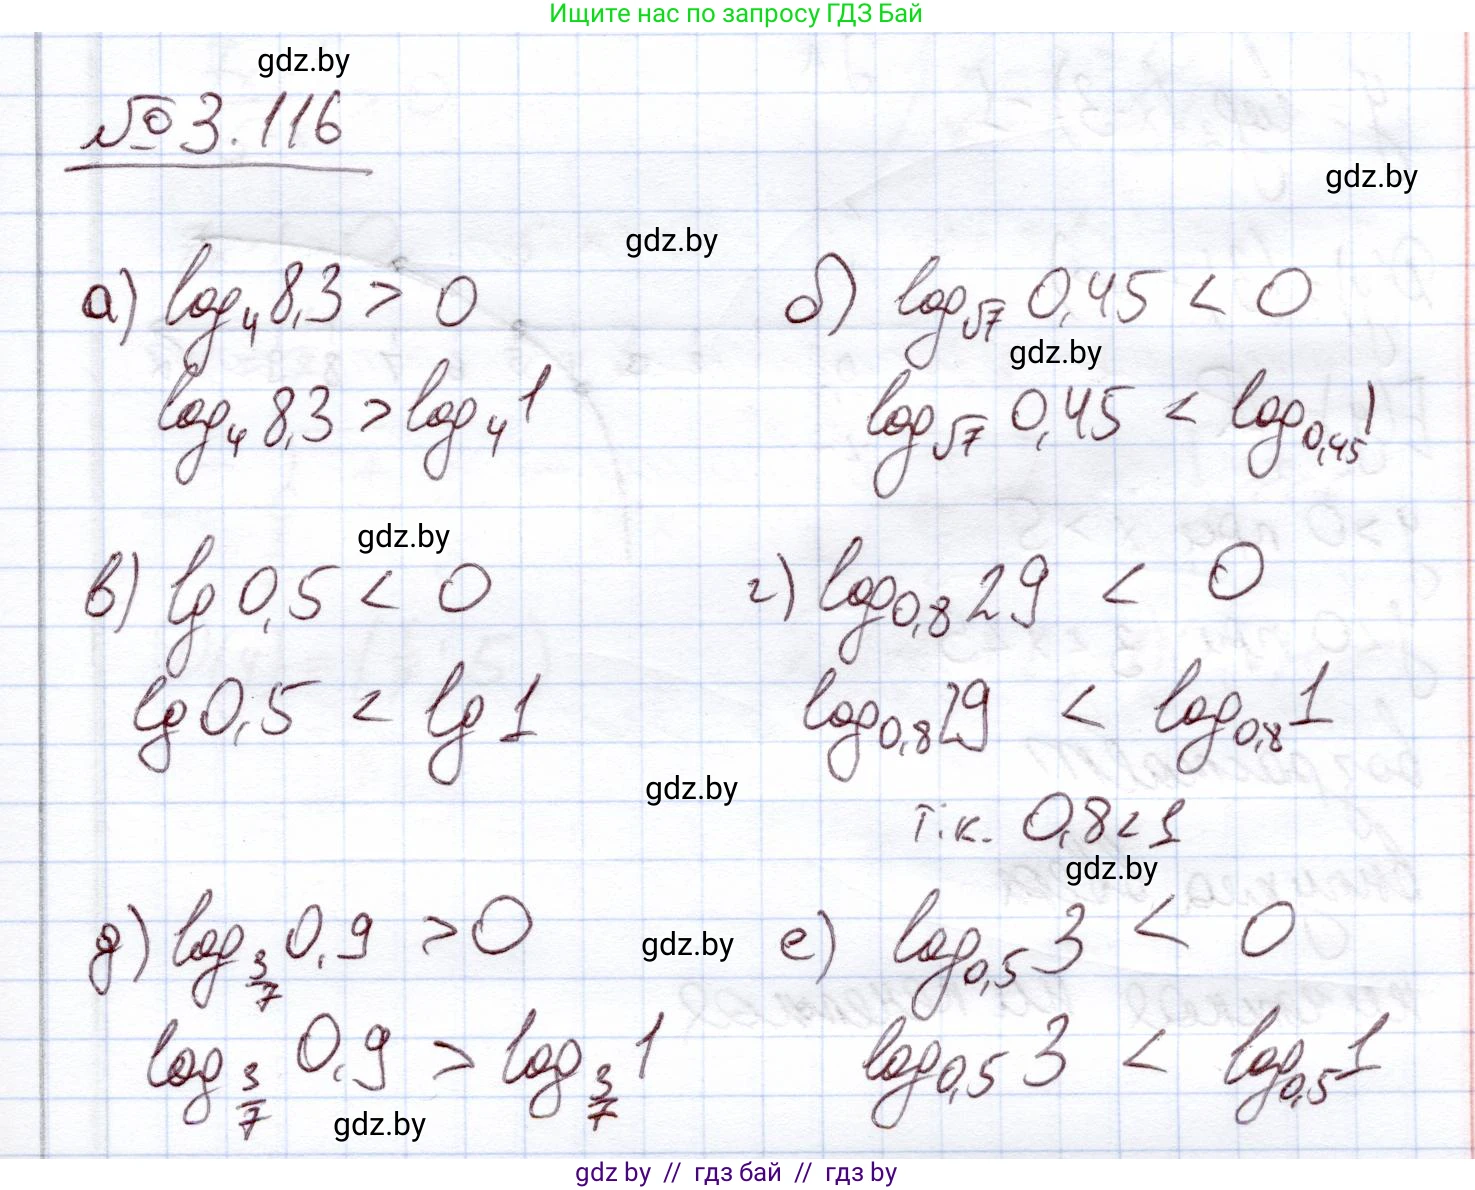 Ищите нас по запросу ГДЗ Бай
gdz.by
№ 3.116
gdz.by
gdz.by
а) log₄ 8,3 > 0
б) log√7 0,45 < 0
gdz.by
log₄ 8,3 > log₄ 1
log√7 0,45 < log₀,₄₅ 1
gdz.by
в) lg 0,5 < 0
г) log₀,₈ 29 < 0
lg 0,5 < lg 1
log₀,₈ 29 < log₀,₈ 1
gdz.by
т.к. 0,8 < 1
gdz.by
д) log 3/7 0,9 > 0
gdz.by
е) log₀,₅ 3 < 0
log 3/7 0,9 > log 3/7 1
log₀,₅ 3 < log₀,₅ 1
gdz.by
gdz by // гдз бай // гдз by